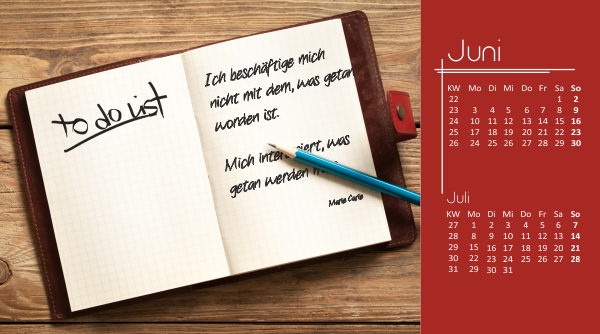 to do list
Ich beschäftige mich
nicht mit dem, was getan
worden ist.
Mich interessiert, was
getan werden
Marie Curie
Juni
KW Mo Di Mi Do Fr Sa So
22 1 2
23 3 4 5 6 7 8 9
24 10 11 12 13 14 15 16
25 17 18 19 20 21 22 23
26 24 25 26 27 28 29 30
Juli
KW Mo Di Mi Do Fr Sa So
27 1 2 3 4 5 6 7
28 8 9 10 11 12 13 14
29 15 16 17 18 19 20 21
30 22 23 24 25 26 27 28
31 29 30 31